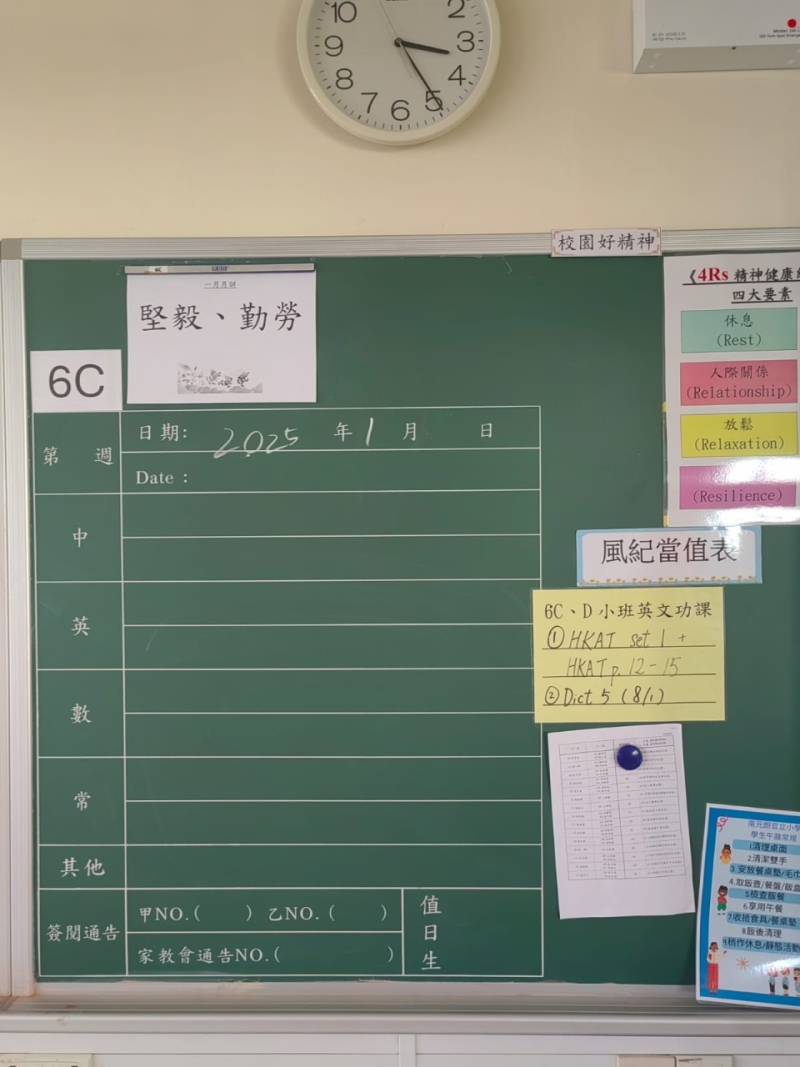 10 2
9 3
8 4
7 6 5
校園好精神
6C
一月月訓
堅毅、勤勞
《4Rs 精神健康
四大要素
休息
(Rest)
人際關係
(Relationship)
放鬆
(Relaxation)
(Resilience)
6C
第 週
日期: 2025 年 1 月 日
Date :
中
英
數
常
其他
簽閱通告
甲NO.( ) 乙NO.( )
家教會通告NO.( )
值日生
風紀當值表
6C、D 小班英文功課
① HKAT set 1 +
HKAT p. 12-15
② Dict 5 (8/1)
南元朗官立小學
學生午膳常規
1.清理桌面
2.清潔雙手
3.安放餐桌墊/毛巾
4.取飯壺/餐盤/飯盒
5.檢查飯餐
6.享用午餐
7.收拾食具/餐桌墊
8.飯後清理
9.稍作休息/靜態活動